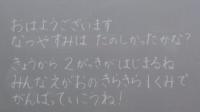 おはようございます
なつやすみは たのしかったかな?
きょうから 2がっきがはじまるね
みんなえがおのきらきら1くみで
がんばっていこうね!